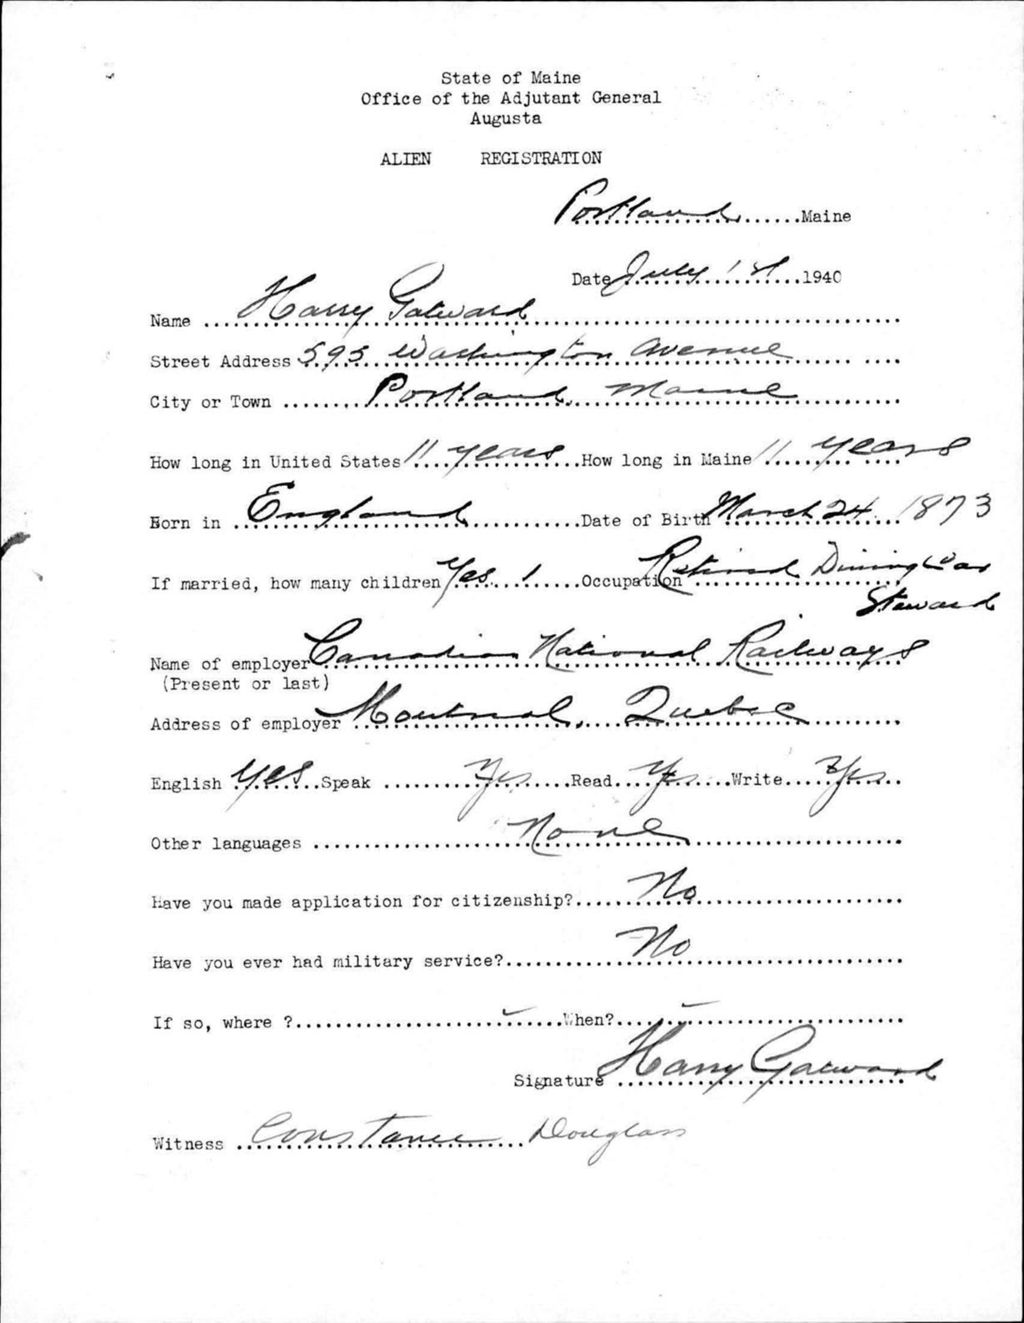 State of Maine
Office of the Adjutant General
Augusta
ALIEN REGISTRATION
Portland Maine
Date July 1st 1940
Name Harry Gatward
Street Address 593 Washington Avenue
City or Town Portland, Maine
How long in United States 11 years How long in Maine 11 years
Born in England Date of Birth March 24 1873
If married, how many children Yes 1 Occupation Retired Dining Car
Steward
Name of employer Canadian National Railways
(Present or last)
Address of employer Montreal, Quebec
English Yes Speak Yes Read Yes Write Yes
Other languages None
Have you made application for citizenship? No
Have you ever had military service? No
If so, where ? - When? -
Signature Harry Gatward
Witness Constance Douglass